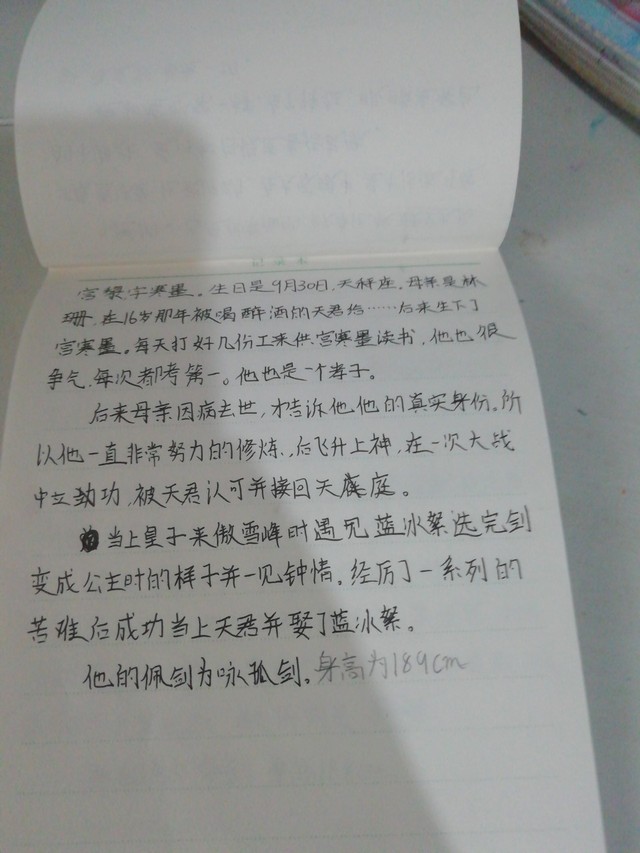 记录本
宫槊字寒墨。生日是9月30日,天秤座。母亲是林
珊,在16岁那年被喝醉酒的天君给……后来生下了
宫寒墨。每天打好几份工来供宫寒墨读书,他也很
争气,每次都考第一。他也是一个孝子。
后来母亲因病去世,才告诉他他的真实身份。所
以他一直非常努力的修炼,后飞升上神,在一次大战
中立劲功,被天君认可并接回天庭。
当上皇子来傲雪峰时遇见蓝冰絮选完剑
变成公主时的样子并一见钟情。经历了一系列的
苦难后成功当上天君并娶了蓝冰絮。
他的佩剑为咏孤剑。身高为189cm